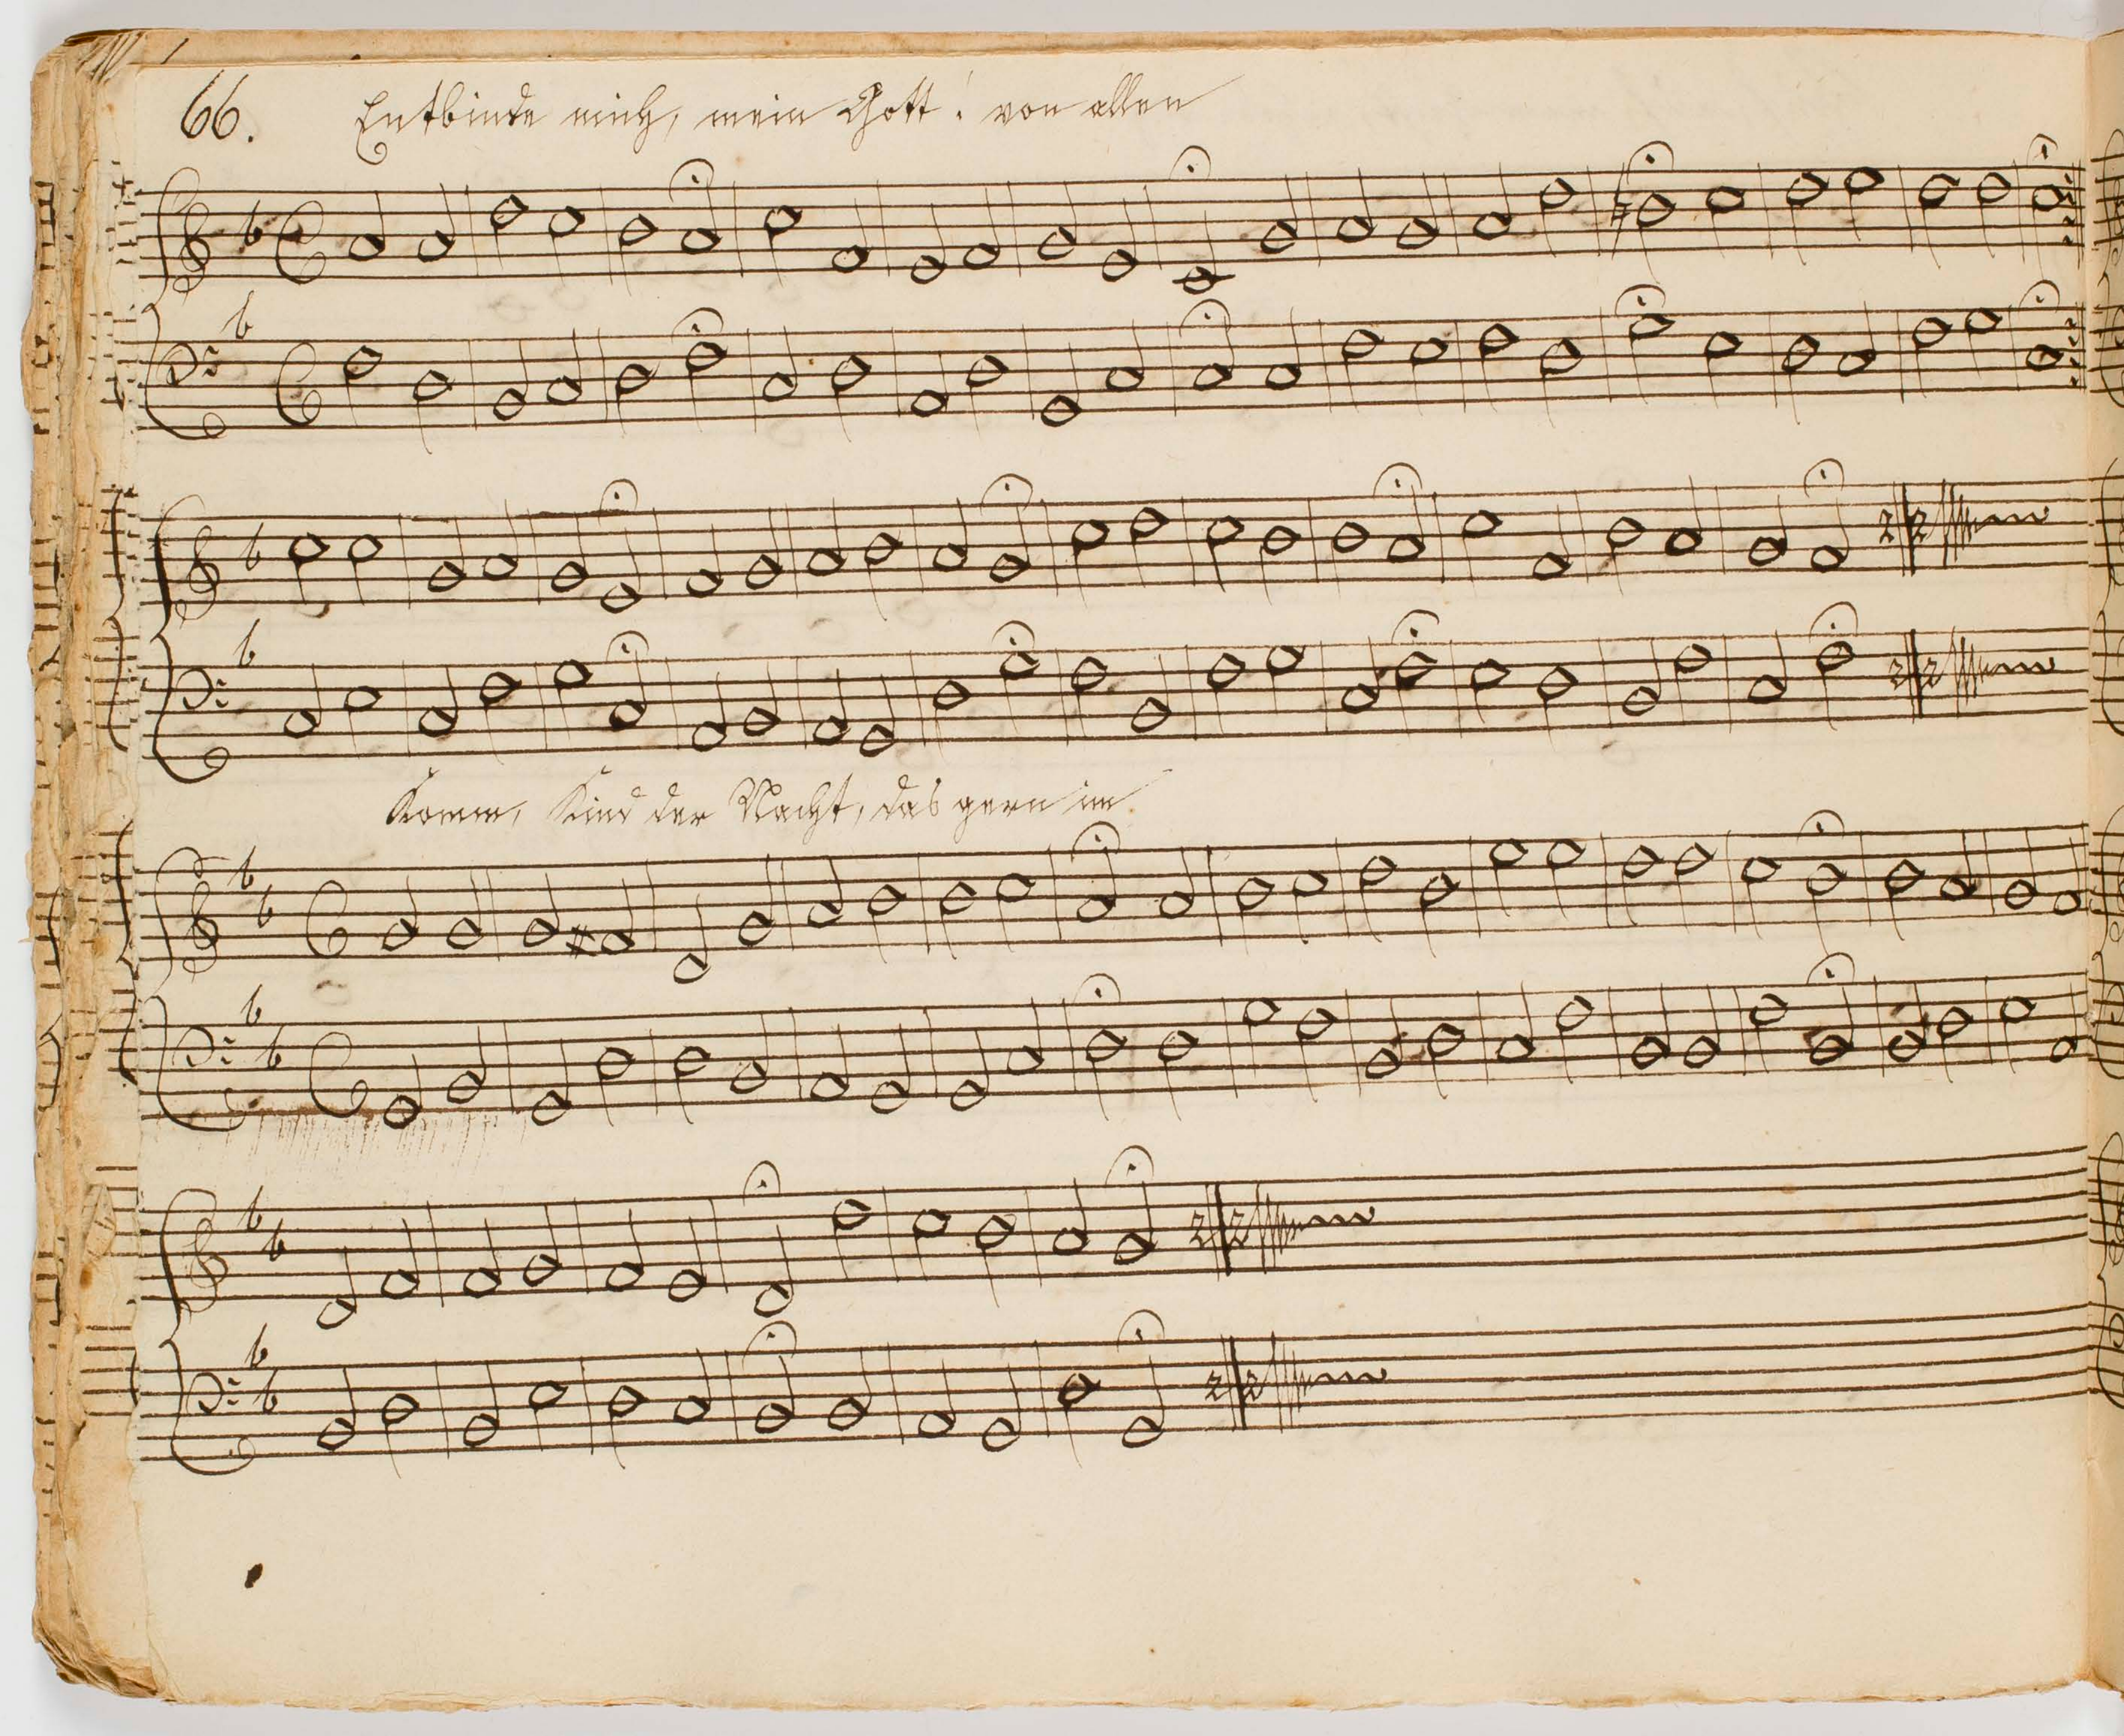 66. Entbinde mich, mein Gott! von allen
Komm, Kind der Nacht, das gern im